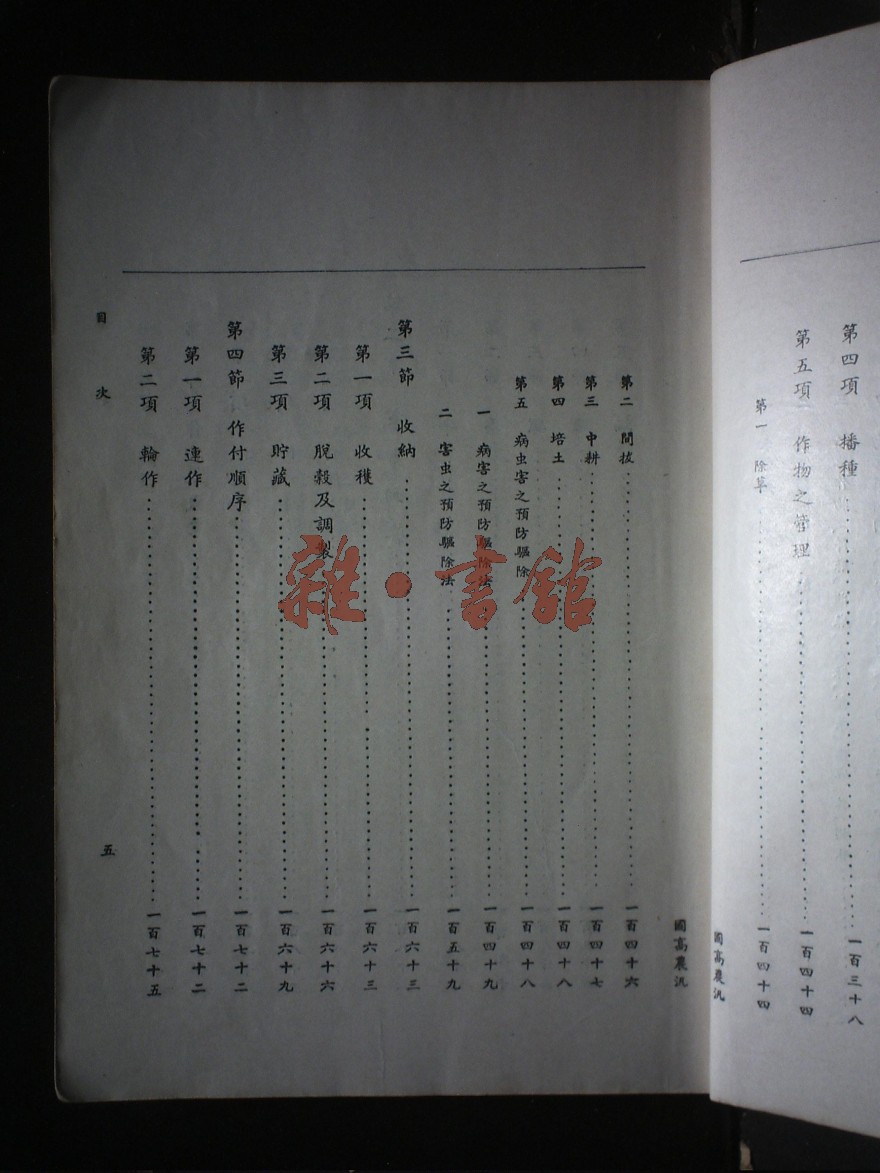 第四項　播種………一百三十八
第五項　作物之管理………一百四十四
第一　除草………一百四十四
國高農汎
國高農汎
第二　間拔………一百四十六
第三　中耕………一百四十七
第四　培土………一百四十八
第五　病虫害之預防驅除………一百四十八
一　病害之預防驅除法………一百四十九
二　害虫之預防驅除法………一百五十九
第三節　收納………一百六十三
第一項　收穫………一百六十三
第二項　脫穀及調製………一百六十六
第三項　貯藏………一百六十九
第四節　作付順序………一百七十二
第一項　連作………一百七十二
第二項　輪作………一百七十五
目　次　五
雜·書館